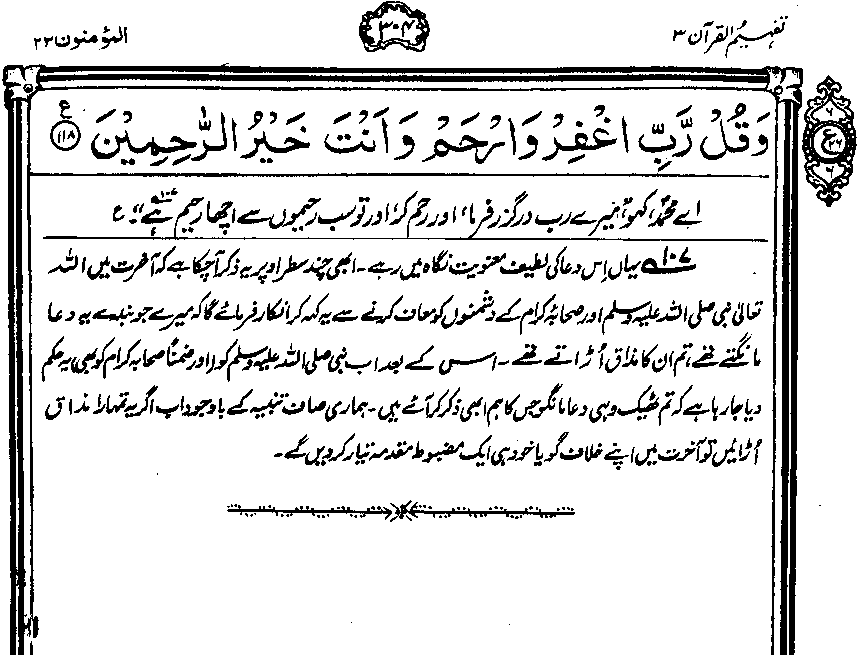 تفہیم القرآن ۳
۳۰۴
المؤمنون ۲۳
وَقُلْ رَّبِّ اغْفِرْ وَارْحَمْ وَاَنْتَ خَيْرُ الرّٰحِمِيْنَ ﴿۱۱۸﴾ ع
اے محمدؐ، کہو، ”میرے رب درگزر فرما، اور رحم کر، اور تو سب رحیموں سے اچھا رحیم ہے۱۰۷۔“ ع
۱۰۷ یہاں اِس دعا کی لطیف معنویت نگاہ میں رہے۔ ابھی چند سطر اوپر یہ ذکر آچکا ہے کہ آخرت میں اللہ
تعالیٰ نبی صلی اللہ علیہ وسلم اور صحابۂ کرام کے دشمنوں کو معاف کرنے سے یہ کہہ کر انکار فرمائے گا کہ میرے جو بندے یہ دعا
مانگتے تھے، تم ان کا مذاق اُڑاتے تھے۔ اس کے بعد اب نبی صلی اللہ علیہ وسلم کو (اور ضمناً صحابہ کرام کو بھی) یہ حکم
دیا جارہا ہے کہ تم ٹھیک وہی دعا مانگو جس کا ہم ابھی ذکر کر آئے ہیں۔ ہماری صاف تنبیہ کے باوجود اب اگر یہ تمہارا مذاق
اُڑائیں تو آخرت میں اپنے خلاف گویا خود ہی ایک مضبوط مقدمہ تیار کردیں گے۔